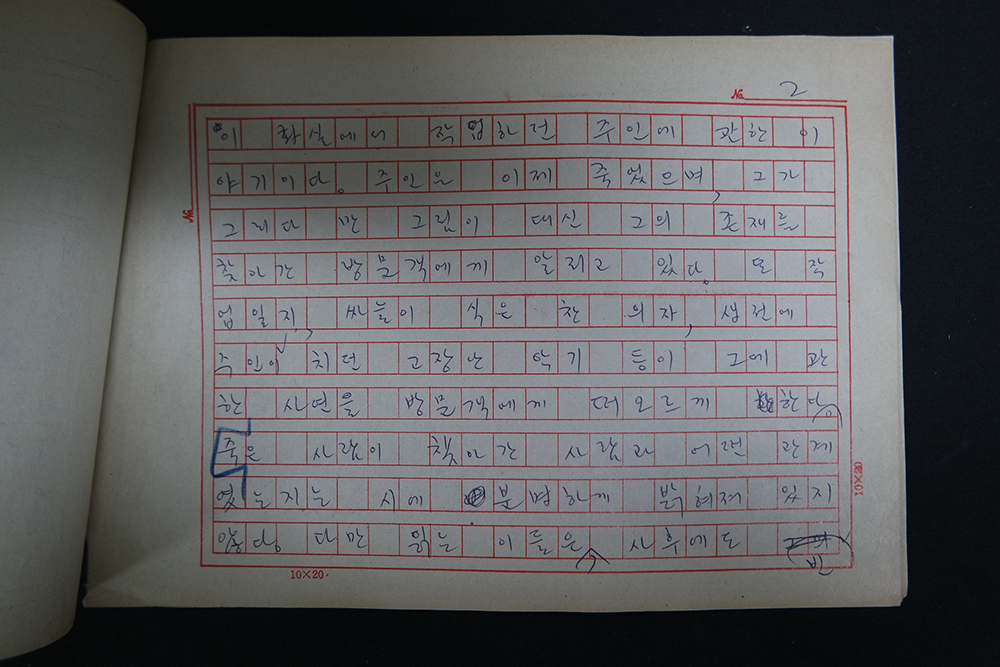 No. 2
이 화실에서 작업하던 주인에 관한 이
야기이다. 주인은 이제 죽었으며, 그가
그리다 만 그림이 대신 그의 존재를
찾아간 방문객에게 알리고 있다. 또 작
업일지, 싸늘이 식은 찬 의자, 생전에
주인이 치던 고장난 악기 등이 그에 관
한 사연을 방문객에게 떠오르게 한다.
죽은 사람이 찾아간 사람과 어떤 관계
였는지는 시에 분명하게 밝혀져 있지
않다. 다만 읽는 이들은 사후에도
No.
10×20
10×20